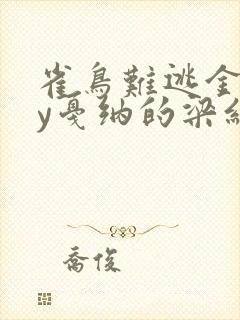 雀鳥難逃金
y戛纳的梁紅
喬俊